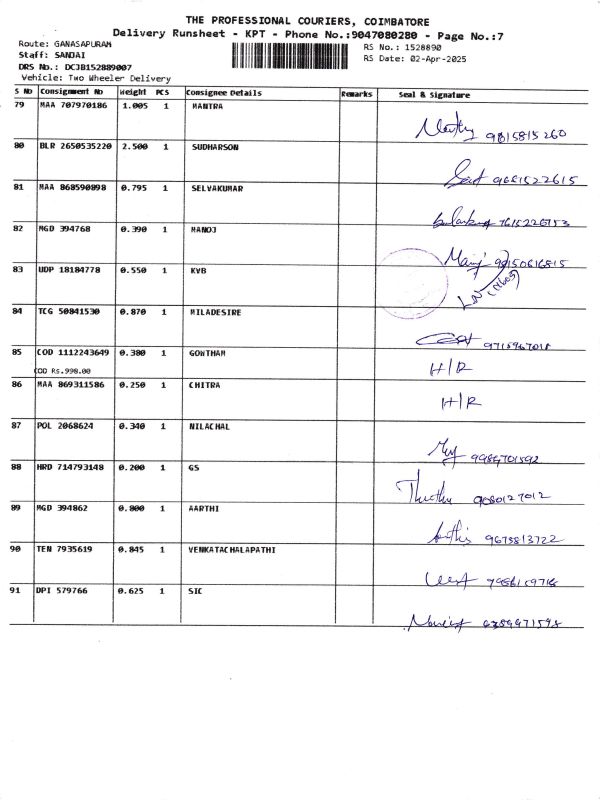 THE PROFESSIONAL COURIERS, COIMBATORE
Delivery Runsheet - KPT - Phone No.:9047080280 - Page No.:7
Route: GANASAPURAM
RS No.: 1528890
Staff: SANJAI
RS Date: 02-Apr-2025
DRS No.: DCJB152889007
Vehicle: Two Wheeler Delivery
S No Consignment No Weight PCS Consignee Details Remarks Seal & Signature
79 MAA 707970186 1.005 1 MANTRA
9815815260
80 BLR 2650535220 2.500 1 SUDHARSON
9681522615
81 MAA 868590898 0.795 1 SELVAKUMAR
82 MGD 394768 0.390 1 MANOJ
Manoj 98150616815
83 UDP 18184778 0.550 1 KVB
84 TCG 50841530 0.870 1 MILADESIRE
9715967018
85 COD 1112243649 0.380 1 GOWTHAM H/R
COD Rs.990.00
86 MAA 869311586 0.250 1 CHITRA H/R
87 POL 2068624 0.340 1 NILACHAL
88 HRD 714793148 0.200 1 GS
9080127012
89 MGD 394862 0.800 1 AARTHI
9675813722
90 TEN 7935619 0.845 1 VENKATACHALAPATHI
91 DPI 579766 0.625 1 SIC